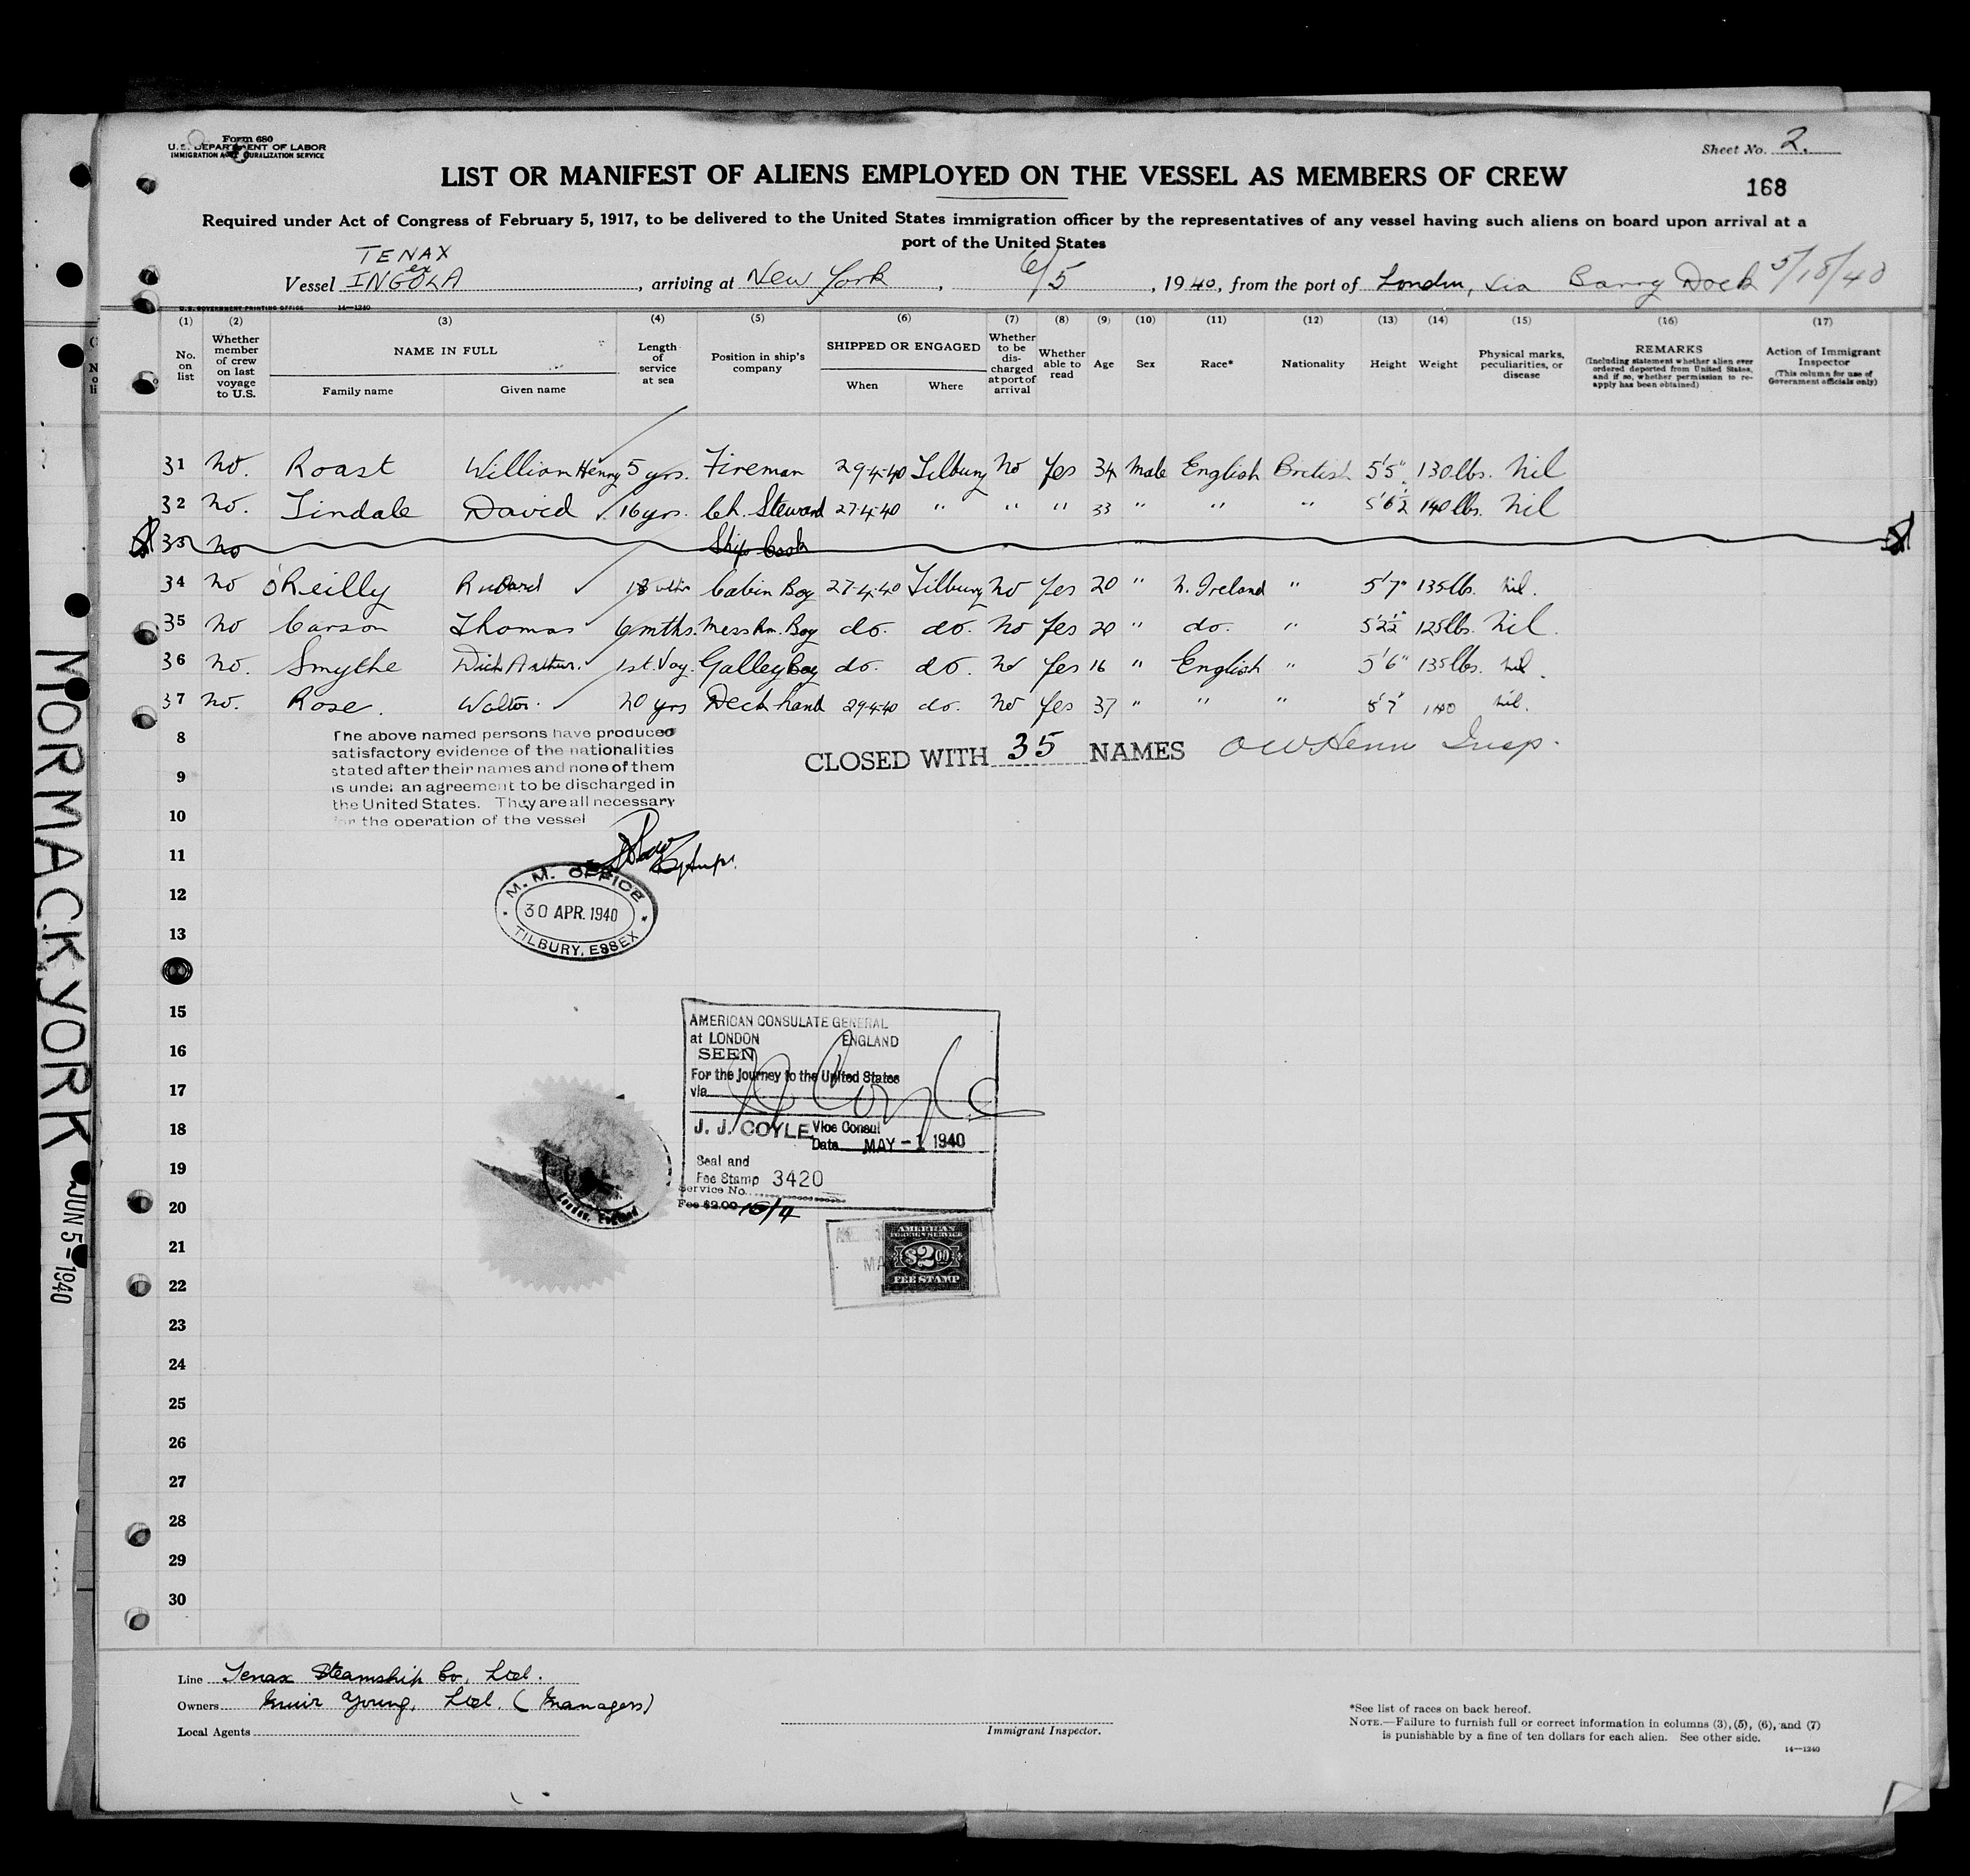 Form 680
U.S. DEPARTMENT OF LABOR
IMMIGRATION AND NATURALIZATION SERVICE
Sheet No. 2.
168
LIST OR MANIFEST OF ALIENS EMPLOYED ON THE VESSEL AS MEMBERS OF CREW
Required under Act of Congress of February 5, 1917, to be delivered to the United States immigration officer by the representatives of any vessel having such aliens on board upon arrival at a
port of the United States
TENAX
ex
Vessel INGOLA, arriving at New York, 6/5, 1940, from the port of London, via Barry Dock 5/18/40
U.S. GOVERNMENT PRINTING OFFICE 14—1240
(1) (2) (3) (4) (5) (6) (7) (8) (9) (10) (11) (12) (13) (14) (15) (16) (17)
No. on list
Whether member of crew on last voyage to U.S.
NAME IN FULL
Family name Given name
Length of service at sea
Position in ship's company
SHIPPED OR ENGAGED
When Where
Whether to be discharged at port of arrival
Whether able to read
Age Sex Race* Nationality Height Weight
Physical marks, peculiarities, or disease
REMARKS
(Including statement whether alien ever ordered deported from United States, and if so, whether permission to reapply has been obtained)
Action of Immigrant Inspector
(This column for use of Government officials only)
31 No. Roast William Henry 5 yrs. Fireman 29-4-40 Tilbury No Yes 34 Male English British 5'5" 130 lbs. Nil
32 No. Tindale David 16 yrs. Ch. Steward 27-4-40 " " " 33 " " " 5'6½ 140 lbs. Nil
33 No Ships Cook
34 No O'Reilly Richard Cabin Boy 27-4-40 Tilbury No Yes 20 " N. Ireland " 5'7" 135 lb. Nil.
35 No Carson Thomas 6 mths. Mess Rm. Boy do. do. No Yes 20 " do. " 5'2½" 125 lbs. Nil.
36 No. Smythe Arthur. 1st. Voy. Galley Boy do. do. No Yes 16 " English " 5'6" 135 lbs. Nil.
37 No. Rose. Walter. 20 yrs Deck hand 29-4-40 do. No Yes 37 " " " 5'7" 140 Nil.
8
The above named persons have produced
satisfactory evidence of the nationalities
stated after their names and none of them
is under an agreement to be discharged in
the United States. They are all necessary
for the operation of the vessel
CLOSED WITH 35 NAMES Insp.
9
10
11
12
13
M. M. OFFICE
30 APR. 1940
TILBURY, ESSEX
15
16
17
18
19
20
21
22
23
24
25
26
27
28
29
30
AMERICAN CONSULATE GENERAL
at LONDON ENGLAND
SEEN
For the journey to the United States
via
J. J. COYLE Vice Consul
Date MAY - 1 1940
Seal and
Fee Stamp 3420
Service No.
Fee $2.00 10/4
London, England
AMERICAN
FOREIGN SERVICE
$2.00
FEE STAMP
Line Tenax Steamship Co. Ltd.
Owners Muir Young, Ltd. (Managers)
Local Agents
Immigrant Inspector.
*See list of races on back hereof.
NOTE.—Failure to furnish full or correct information in columns (3), (5), (6), and (7)
is punishable by a fine of ten dollars for each alien. See other side.
14—1240
MORMACKYORK
JUN 5 - 1940